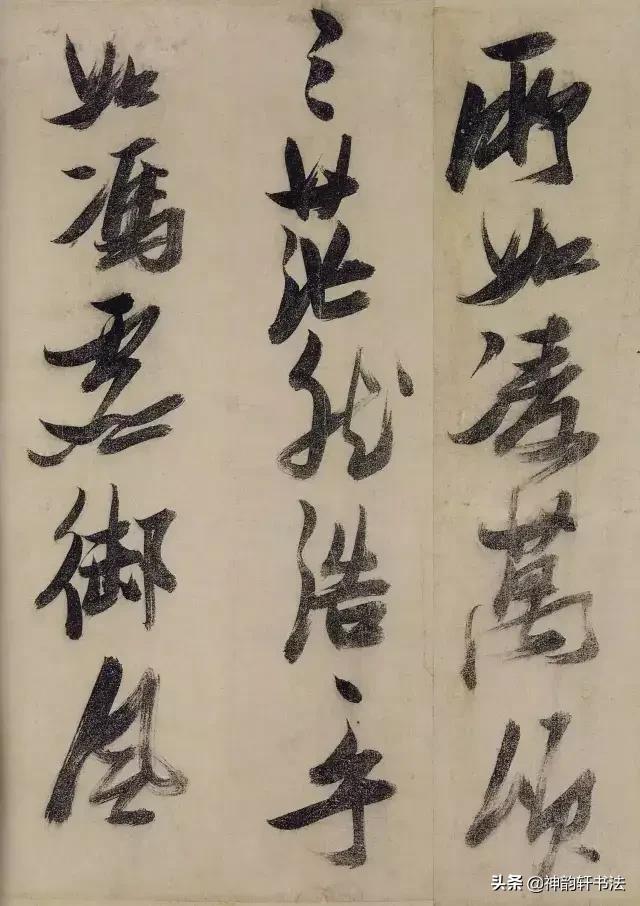 所如凌萬頃
之茫然浩〻乎
如馮虚御風
头条 @神韵轩书法